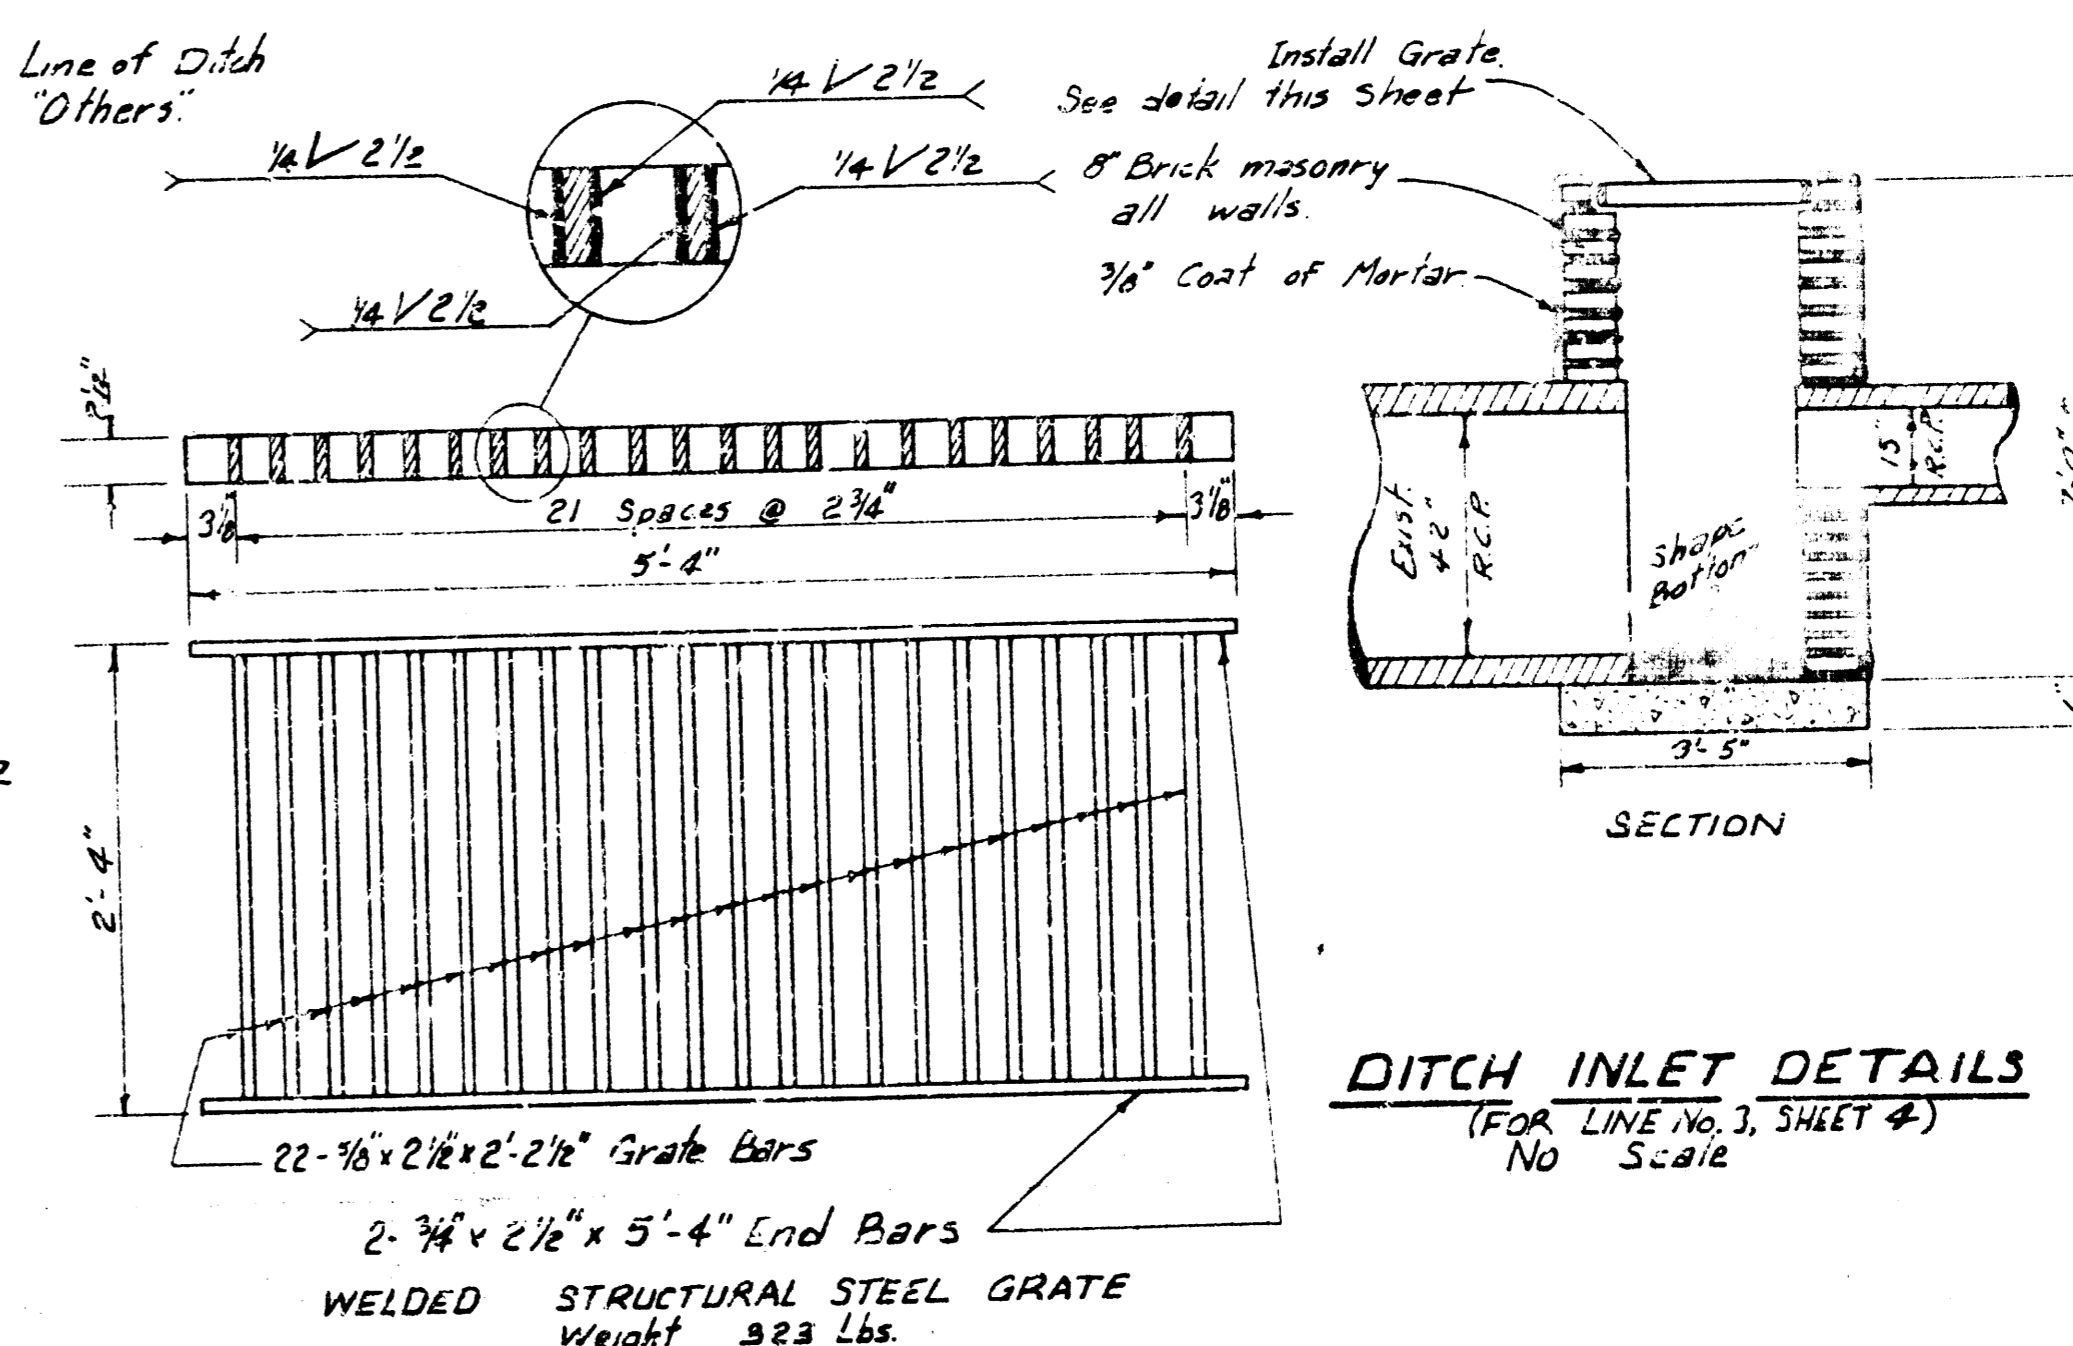 Line of Ditch
"Others".
1/4 V 2 1/2
1/4 V 2 1/2
1/4 V 2 1/2
1/4 V 2 1/2
Install Grate.
See detail this sheet
8" Brick masonry
all walls.
3/8" Coat of Mortar
2 1/2"
3 1/8"
21 Spaces @ 2 3/4"
3 1/8"
5'-4"
2'-4"
Exist.
42"
R.C.P.
Shape
Bottom
15"
R.C.P.
3'-5"
SECTION
22-5/8" x 2 1/2" x 2'-2 1/2" Grate Bars
2-3/4" x 2 1/2" x 5'-4" End Bars
WELDED STRUCTURAL STEEL GRATE
Weight 323 Lbs.
DITCH INLET DETAILS
(FOR LINE No. 3, SHEET 4)
No Scale